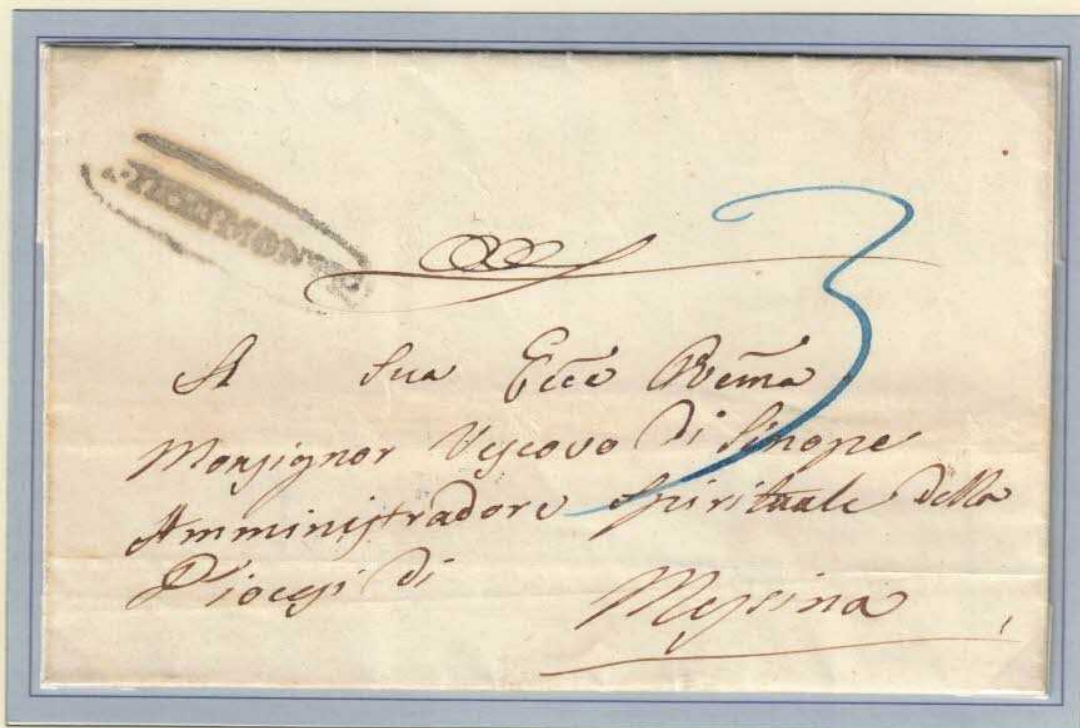 3
A Sua Ecc̄e Rēma
Monsignor Vescovo di Sinope
Amministradore Spirituale della
Diocesi di
Messina